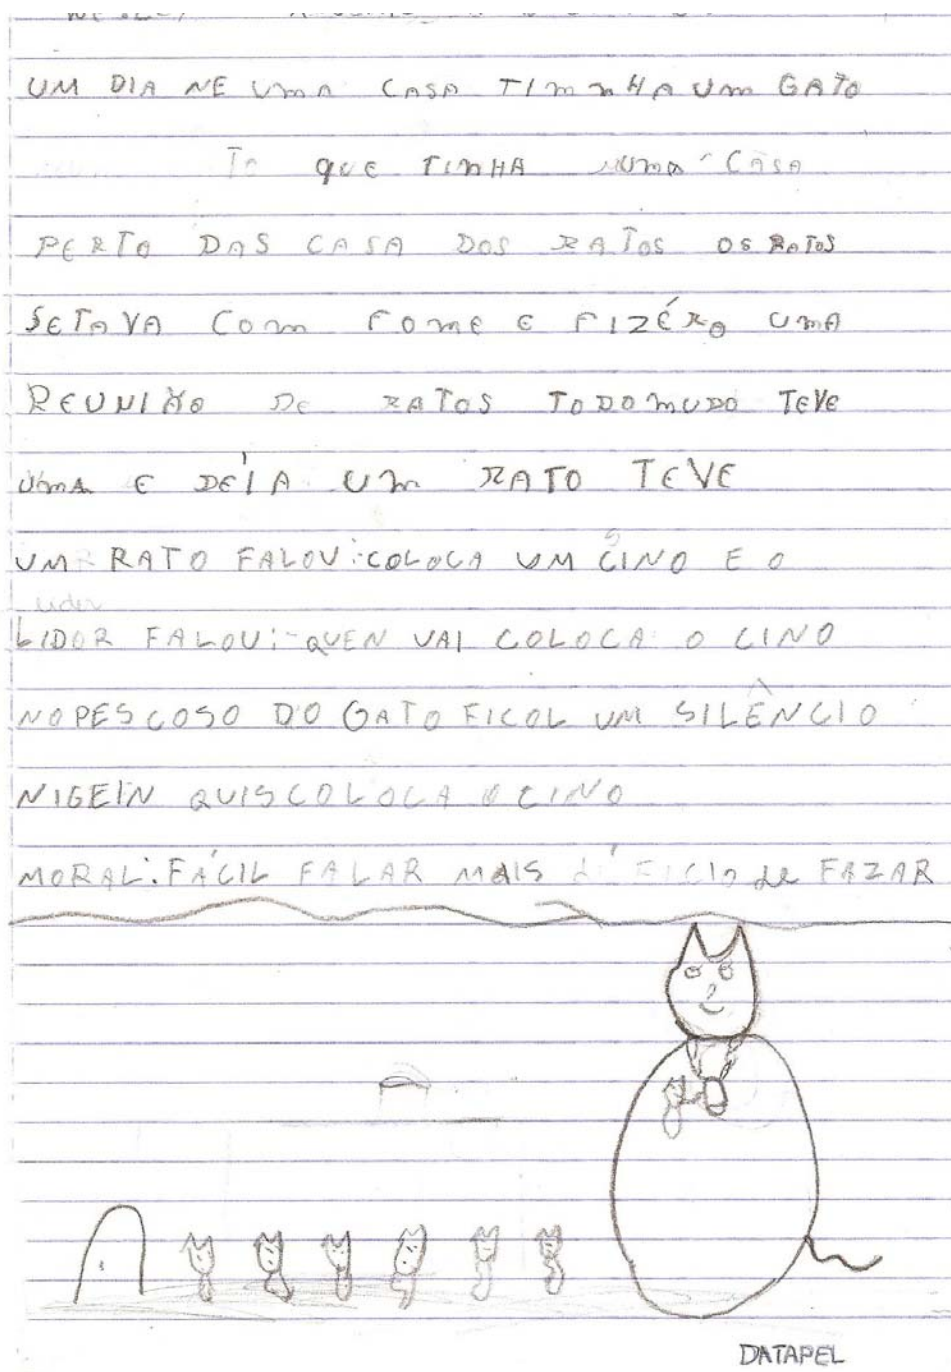 UM DIA NE UMA CASA TIMNHA UM GATO
To QUE TINHA NUMA CASA
PERTO DAS CASA DOS RATOS OS RATOS
SETAVA COM FOME E FIZÉRO UMA
REUNIÃO DE RATOS TODOMUDO TEVE
UMA E DÉIA UM RATO TEVE
UM RATO FALOU: COLOCA UM CINO E O
LIDOR FALOU:- QUEN VAI COLOCA O CINO
NOPESCOSO DO GATO FICOL UM SILÊNCIO
NIGEIN QUISCOLOCA O CINO
MORAL: FÁCIL FALAR MAIS de FAZAR
DATAPEL